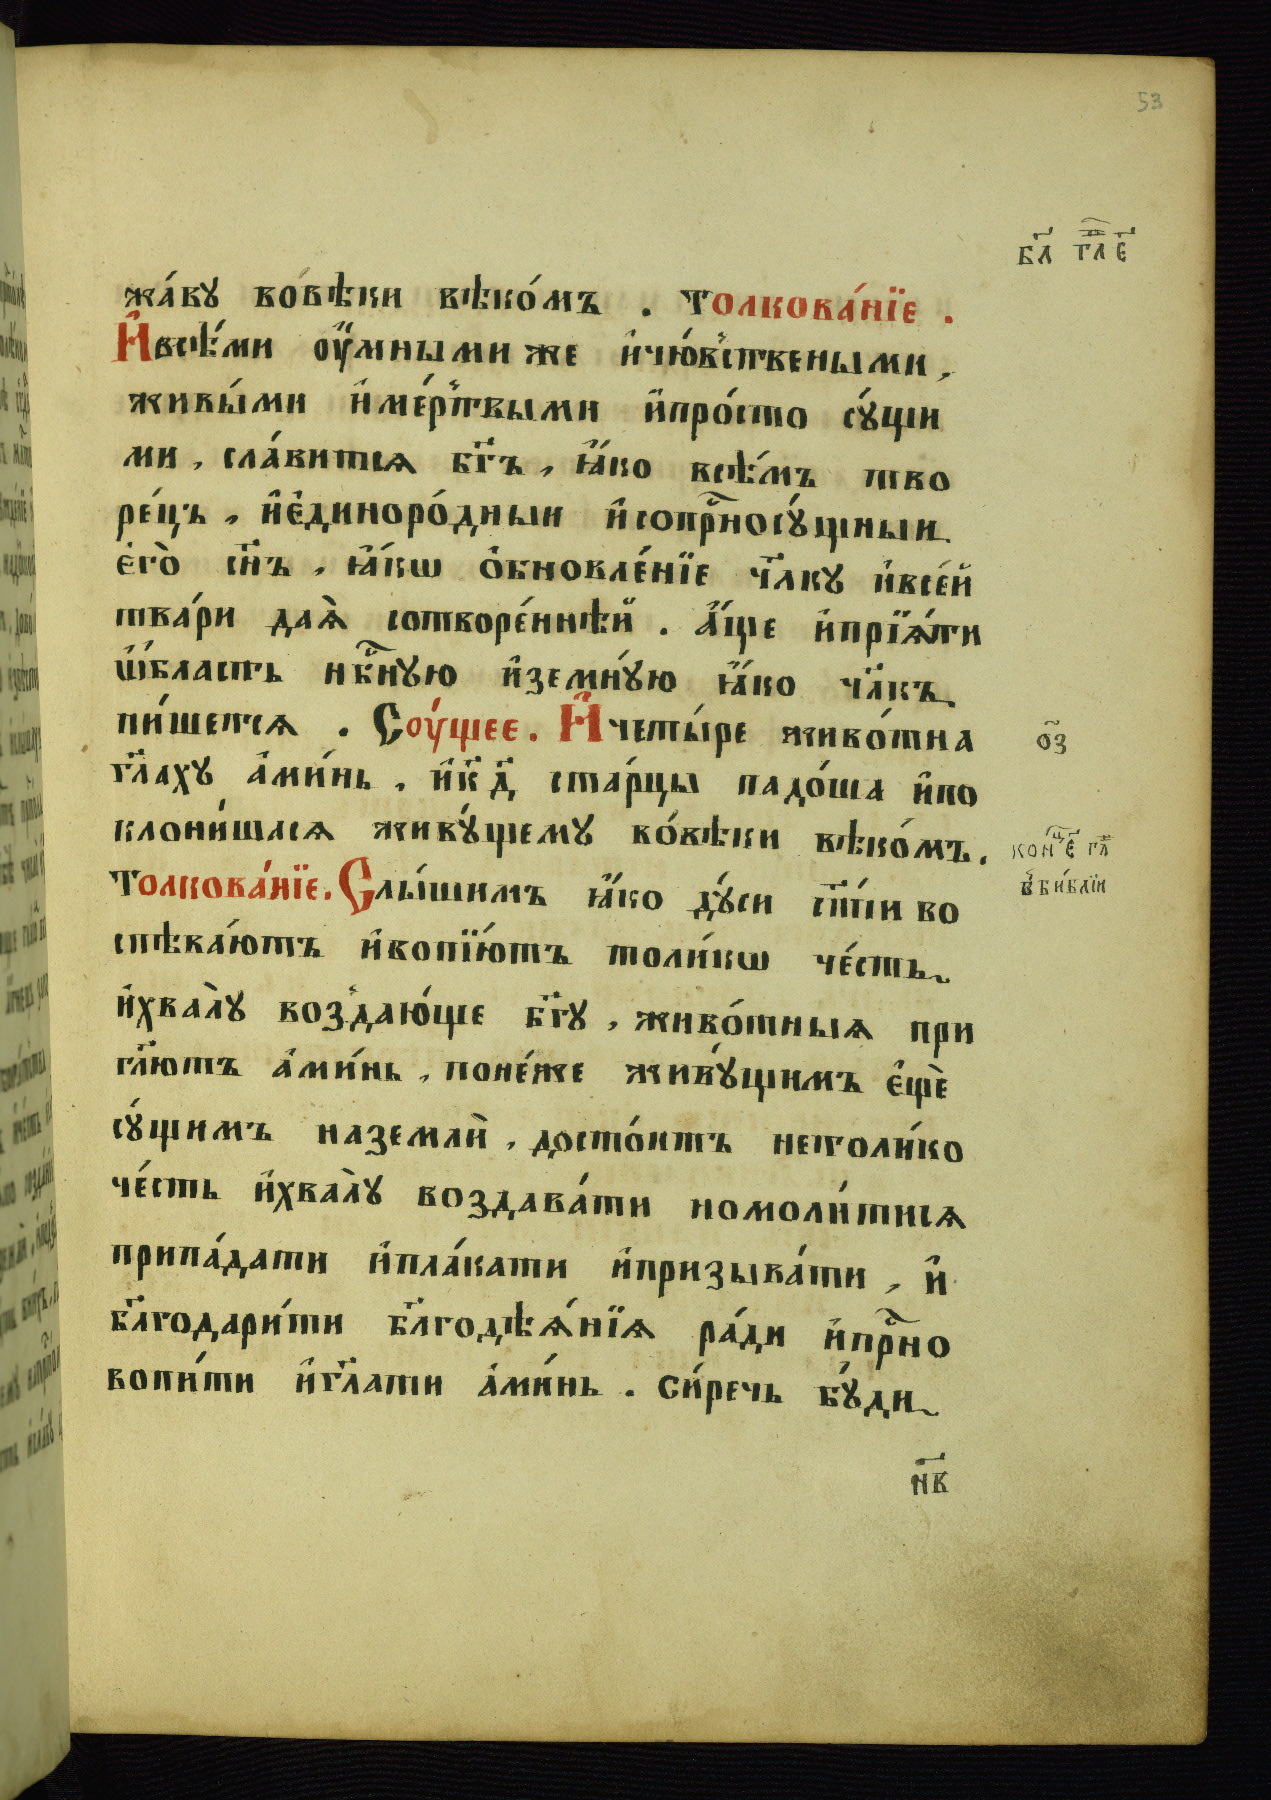 53
бл҃ гл҃ є҃
жа́ву вовѣки вѣко́мъ . Толкова́нїе .
И҆всѣ́ми ᲂу҆́мными же и҆чю́вьствеными ,
живы́ми и҆ме́ртвыми и҆про́сто сꙋ́щи
ми , сла́витсѧ бг҃ъ , ꙗ҆́ко всѣ́мъ тво
ре́цъ , и҆є҆диноро́дныи и҆сопрⷭ҇носꙋ́щныи
є҆го̀ сн҃ъ , ꙗ҆́кѡ ѻ҆бновле́нїе чл҃кꙋ и҆все́й
тва́ри даѧ̀ сотворе́ннѣй . а҆́ще и҆прїѧ́ти
ѡ҆́бласть нбⷭ҇нꙋю и҆земнꙋ́ю ꙗ҆́ко чл҃къ
пи́шетсѧ . Сꙋ́щее . И҆четы́ре живо́тна
гл҃ахꙋ а҆ми́нь , и҆к҃д ста́рцы падо́ша и҆по
клони́шасѧ живꙋ́щемꙋ во́вѣки вѣко́мъ .
Толкова́нїе . Слы́шимъ ꙗ҆́ко дꙋ́си ст҃іи во
спѣва́ютъ и҆вопїю́тъ толи́кѡ че́сть
и҆хвалꙋ̀ воздаю́ще бг҃ꙋ , живо́тныѧ при
гл҃ютъ а҆ми́нь , поне́же живꙋ́щимъ є҆щѐ
сꙋ́щимъ наземлѝ , досто́итъ нетоли́ко
че́сть и҆хвалꙋ̀ воздава́ти номоли́тисѧ
припа́дати и҆пла́кати и҆призыва́ти , и҆
бл҃годари́ти бл҃годѣѧ́нїѧ ра́ди и҆прⷭ҇но
вопи́ти и҆гл҃ати а҆ми́нь . си́речь бꙋ́ди
ѻ҃з
коне́цъ є҃ гл҃
в҆би́блїи
н҃в